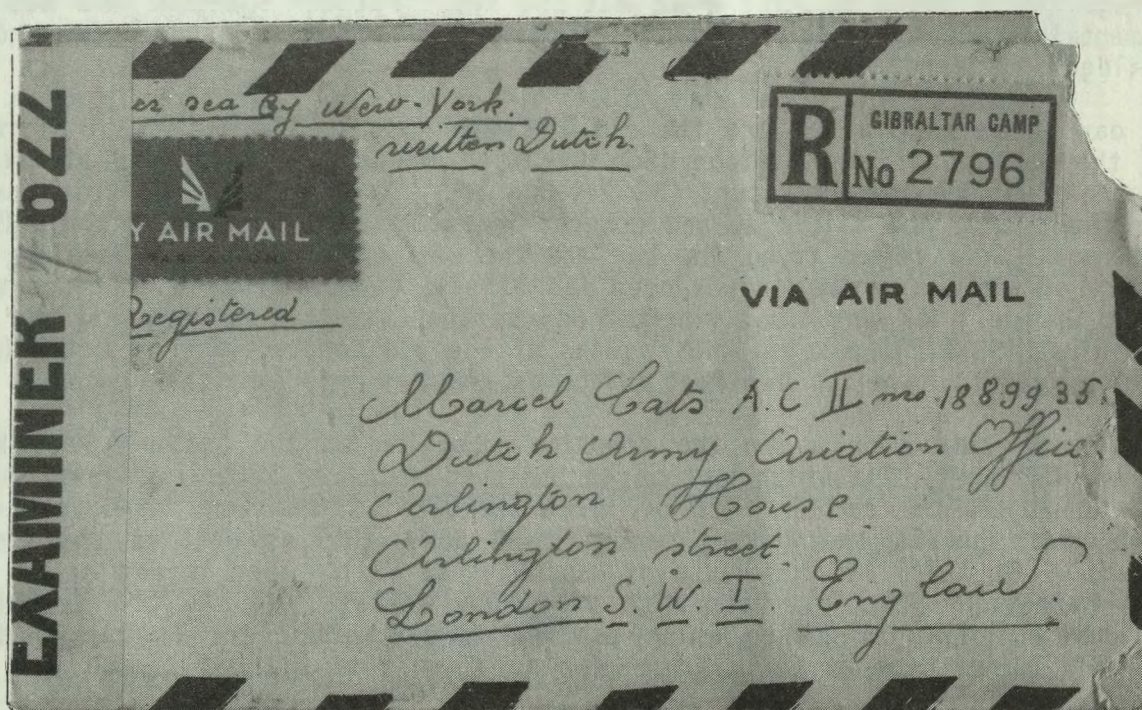 EXAMINER 622
er sea By New-York.
written Dutch.
Y AIR MAIL
PAR AVION
Registered
R
GIBRALTAR CAMP
No 2796
VIA AIR MAIL
Marcel Cats A.C II no. 1889935.
Dutch Army Aviation Office.
Arlington House
Arlington street.
London S. W. I. England.